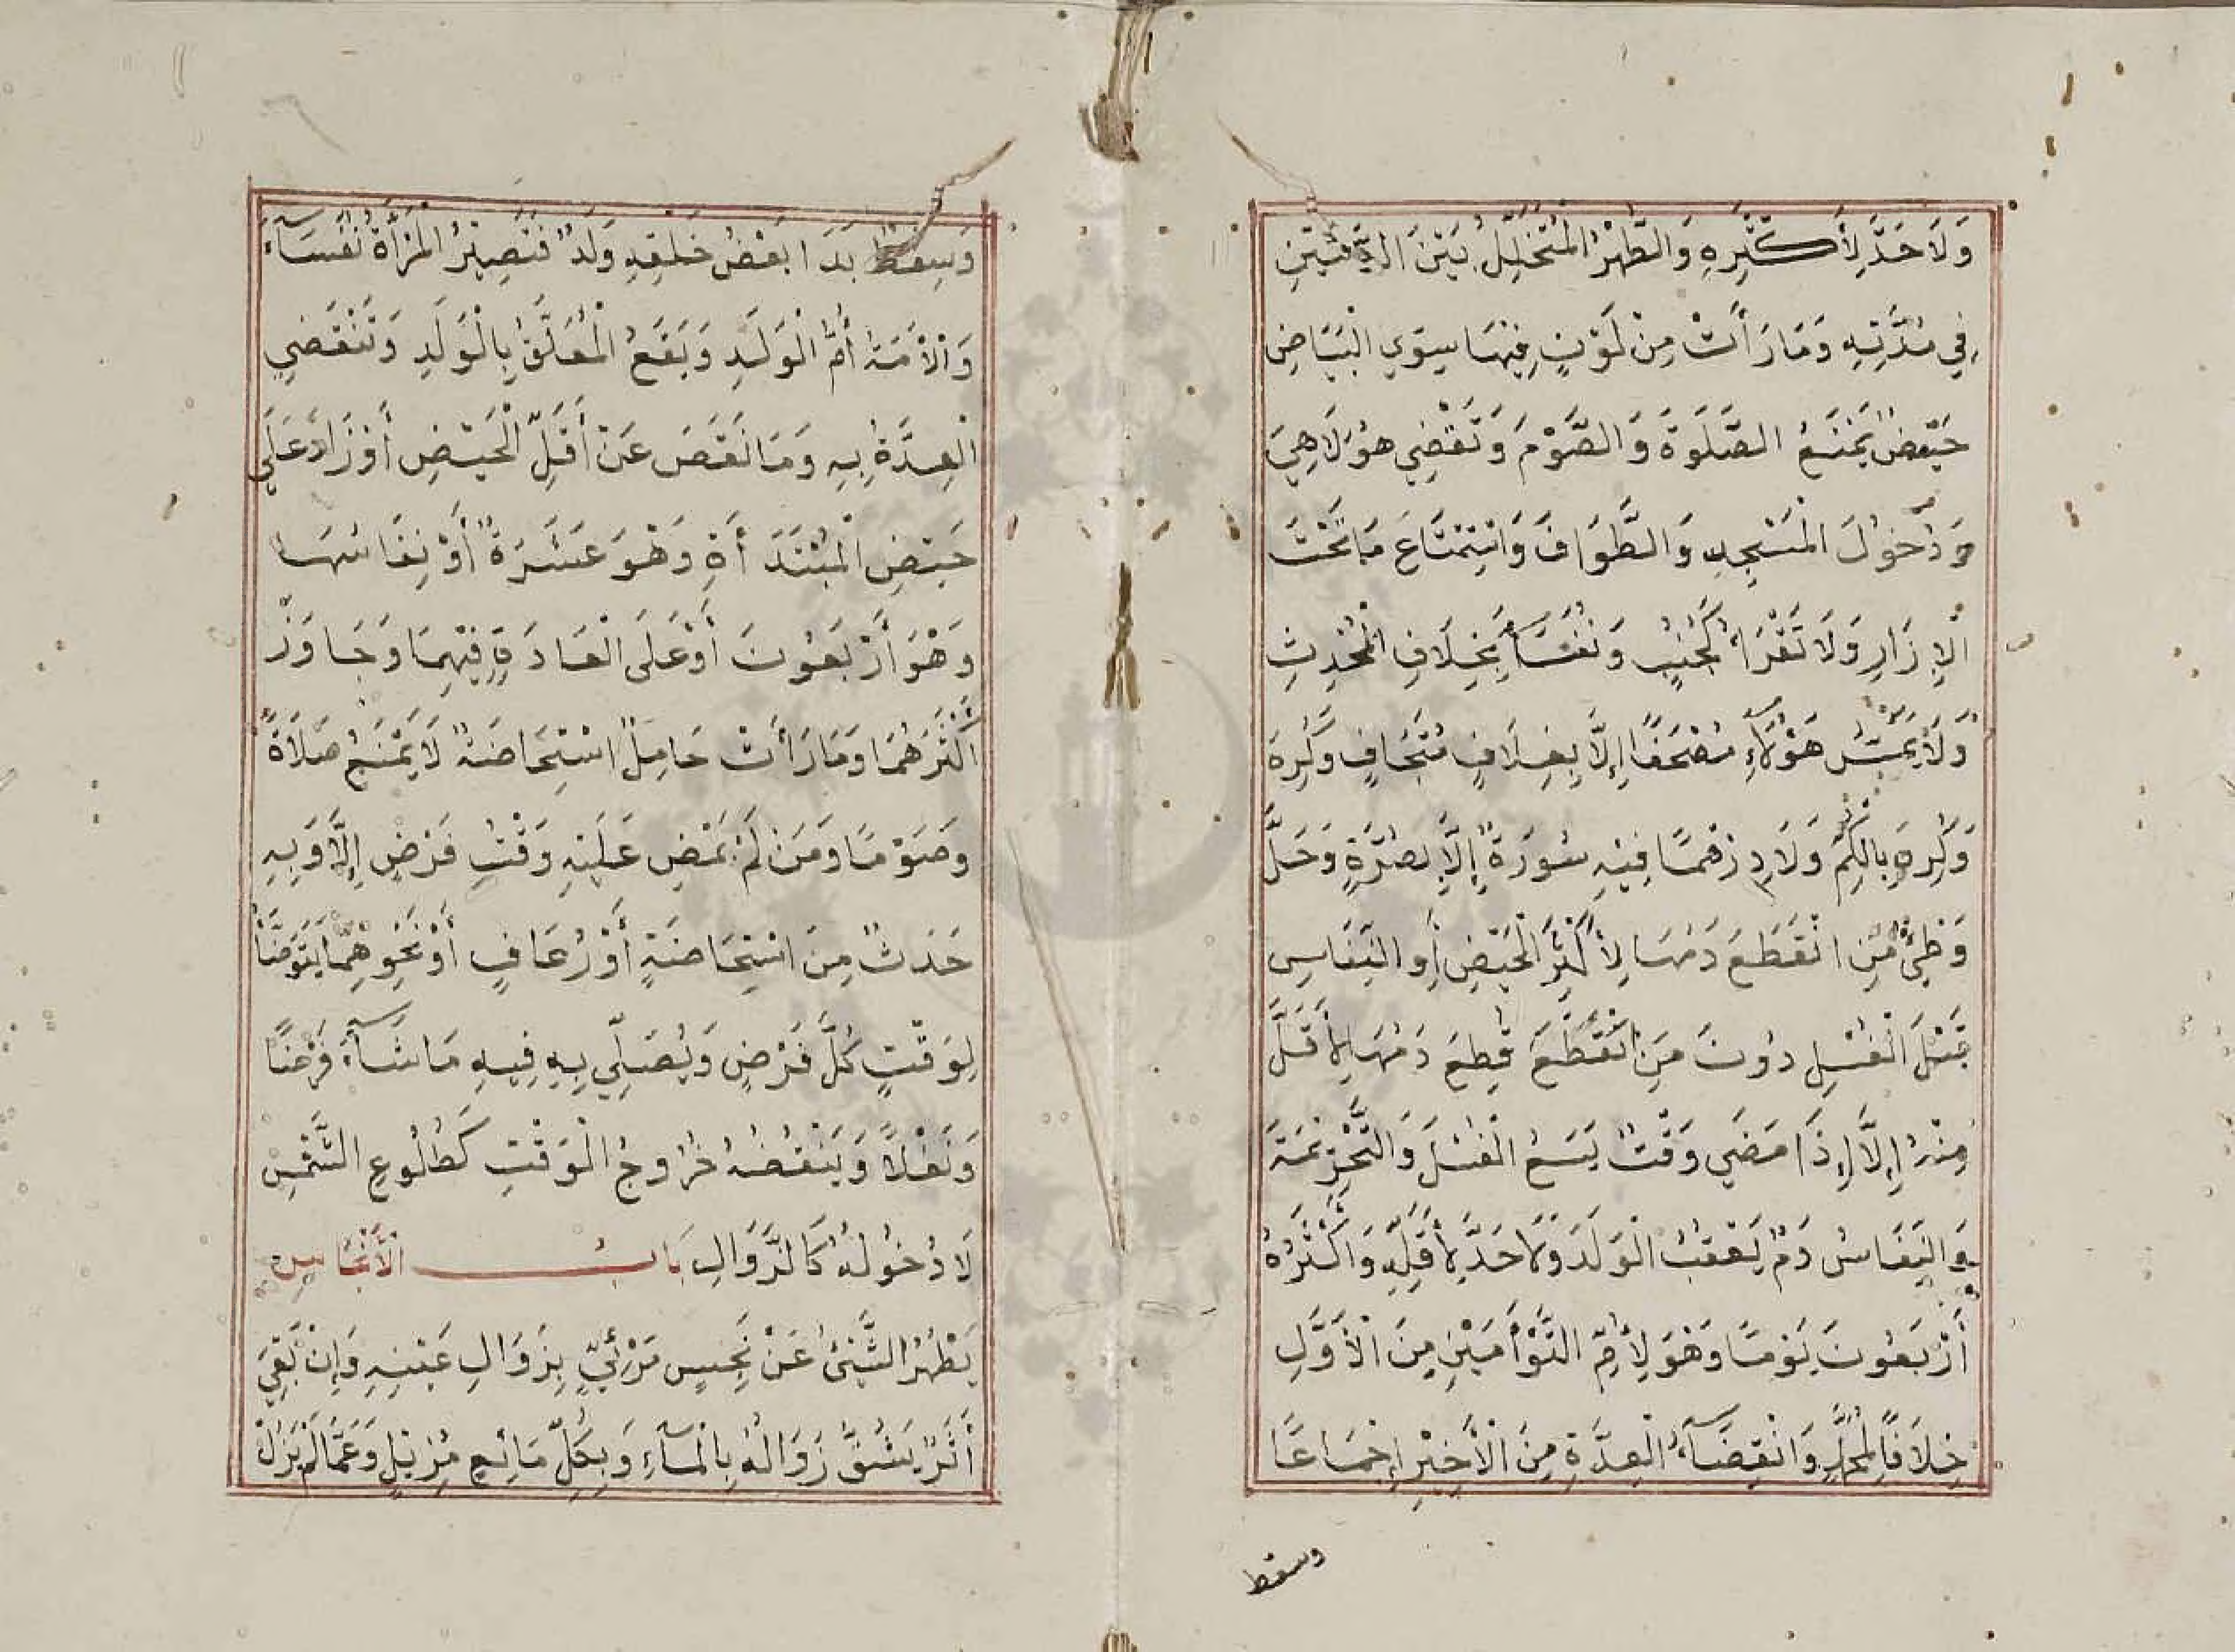 وَلَا حَدَّ لِأَكْثَرِهِ وَالطُّهْرُ الْمُتَخَلِّلُ بَيْنَ الدَّمَيْنِ
فِي مُدَّتِهِ وَمَا رَأَتْ مِنْ لَوْنٍ فِيْهَا سِوَي الْبَيَاضِ
حَيْضٌ يَمْنَعُ الصَّلَوةَ وَالصَّوْمَ وَتَقْضِي هُوَ لَا هِيَ
وَدُخُولَ الْمَسْجِدِ وَالطَّوَافَ وَاسْتِمْتَاعَ مَا تَحْتَ
الْإِزَارِ وَلَا تَقْرَأُ كَجُنُبٍ وَنُفَسَآءَ بِخِلَافِ الْمُحْدِثِ
وَلَا يَمَسُّ هَؤُلَآءِ مُصْحَفًا إِلَّا بِغِلَافٍ مُتَجَافٍ وَكُرِهَ
وَكُرِهَ بِالْكُمِّ وَلَا دِرْهَمًا فِيْهِ سُورَةٌ إِلَّا بِصُرَّةٍ وَحَلَّ
وَطِئُ مَنِ انْقَطَعَ دَمُهَا لِأَكْثَرِ الْحَيْضِ أَوِ النِّفَاسِ
قَبْلَ الْغُسْلِ دُونَ مَنِ انْقَطَعَ قُطِعَ دَمُهَا لِأَقَلَّ
مِنْهُ إِلَّا إِذَا مَضَي وَقْتٌ يَسَعُ الْغُسْلَ وَالتَّحْرِيْمَةَ
وَالنِّفَاسُ دَمٌ يَعْقُبُ الْوَلَدَ وَلَا حَدَّ لِأَقَلِّهِ وَأَكْثَرُهُ
أَرْبَعُونَ يَوْمًا وَهُوَ لِأُمِّ التَّوْأَمَيْنِ مِنَ الْأَوَّلِ
خِلَافًا لِمُحَمَّدٍ وَانْقِضَآءُ الْعِدَّةِ مِنَ الْأَخِيْرِ إِجْمَاعًا
وسقط
وَسِقْطٌ بَدَا بَعْضُ خَلْقِهِ وَلَدٌ فَتَصِيْرُ الْمَرْأَةُ نُفَسَآءَ
وَالْأَمَةُ أُمَّ الْوَلَدِ وَيَقَعُ الْمُعَلَّقُ بِالْوَلَدِ وَتَنْقَضِي
الْعِدَّةُ بِهِ وَمَا نَقَصَ عَنْ أَقَلِّ الْحَيْضِ أَوْ زَادَ عَلَي
حَيْضِ الْمُبْتَدَأَةِ وَهُوَ عَشَرَةٌ أَوْ نِفَاسُهَا
وَهْوَ أَرْبَعُونَ أَوْ عَلَى الْعَادَةِ فِيْهِمَا وَجَاوَزَ
أَكْثَرَهُمَا وَمَا رَأَتْ حَامِلٌ اسْتِحَاضَةٌ لَا يَمْنَعُ صَلَاةً
وَصَوْمًا وَمَنْ لَمْ يَمْضِ عَلَيْهِ وَقْتُ فَرْضٍ إِلَّا وَبِهِ
حَدَثٌ مِنَ اسْتِحَاضَةٍ أَوْ رُعَافٍ أَوْ نَحْوِهِمَا يَتَوَضَّأُ
لِوَقْتِ كُلِّ فَرْضٍ وَيُصَلِّي بِهِ فِيهِ مَا شَآءَ فَرْضًا
وَنَفْلًا وَيَنْقُضُهُ خُرُوجُ الْوَقْتِ كَطُلُوعِ الشَّمْسِ
لَا دُخُولُهُ كَالزَّوَالِ بَابُ الْأَنْجَاسِ
يَطْهُرُ الشَّيْئُ عَنْ نَجِسٍ مَرْئِيٍّ بِزَوَالِ عَيْنِهِ وَإِنْ بَقِيَ
أَثَرٌ يَشُقُّ زَوَالُهُ بِالْمَآءِ وَبِكُلِّ مَائِعٍ مُزِيْلٍ وَعَمَّا لَمْ يَزَلْ